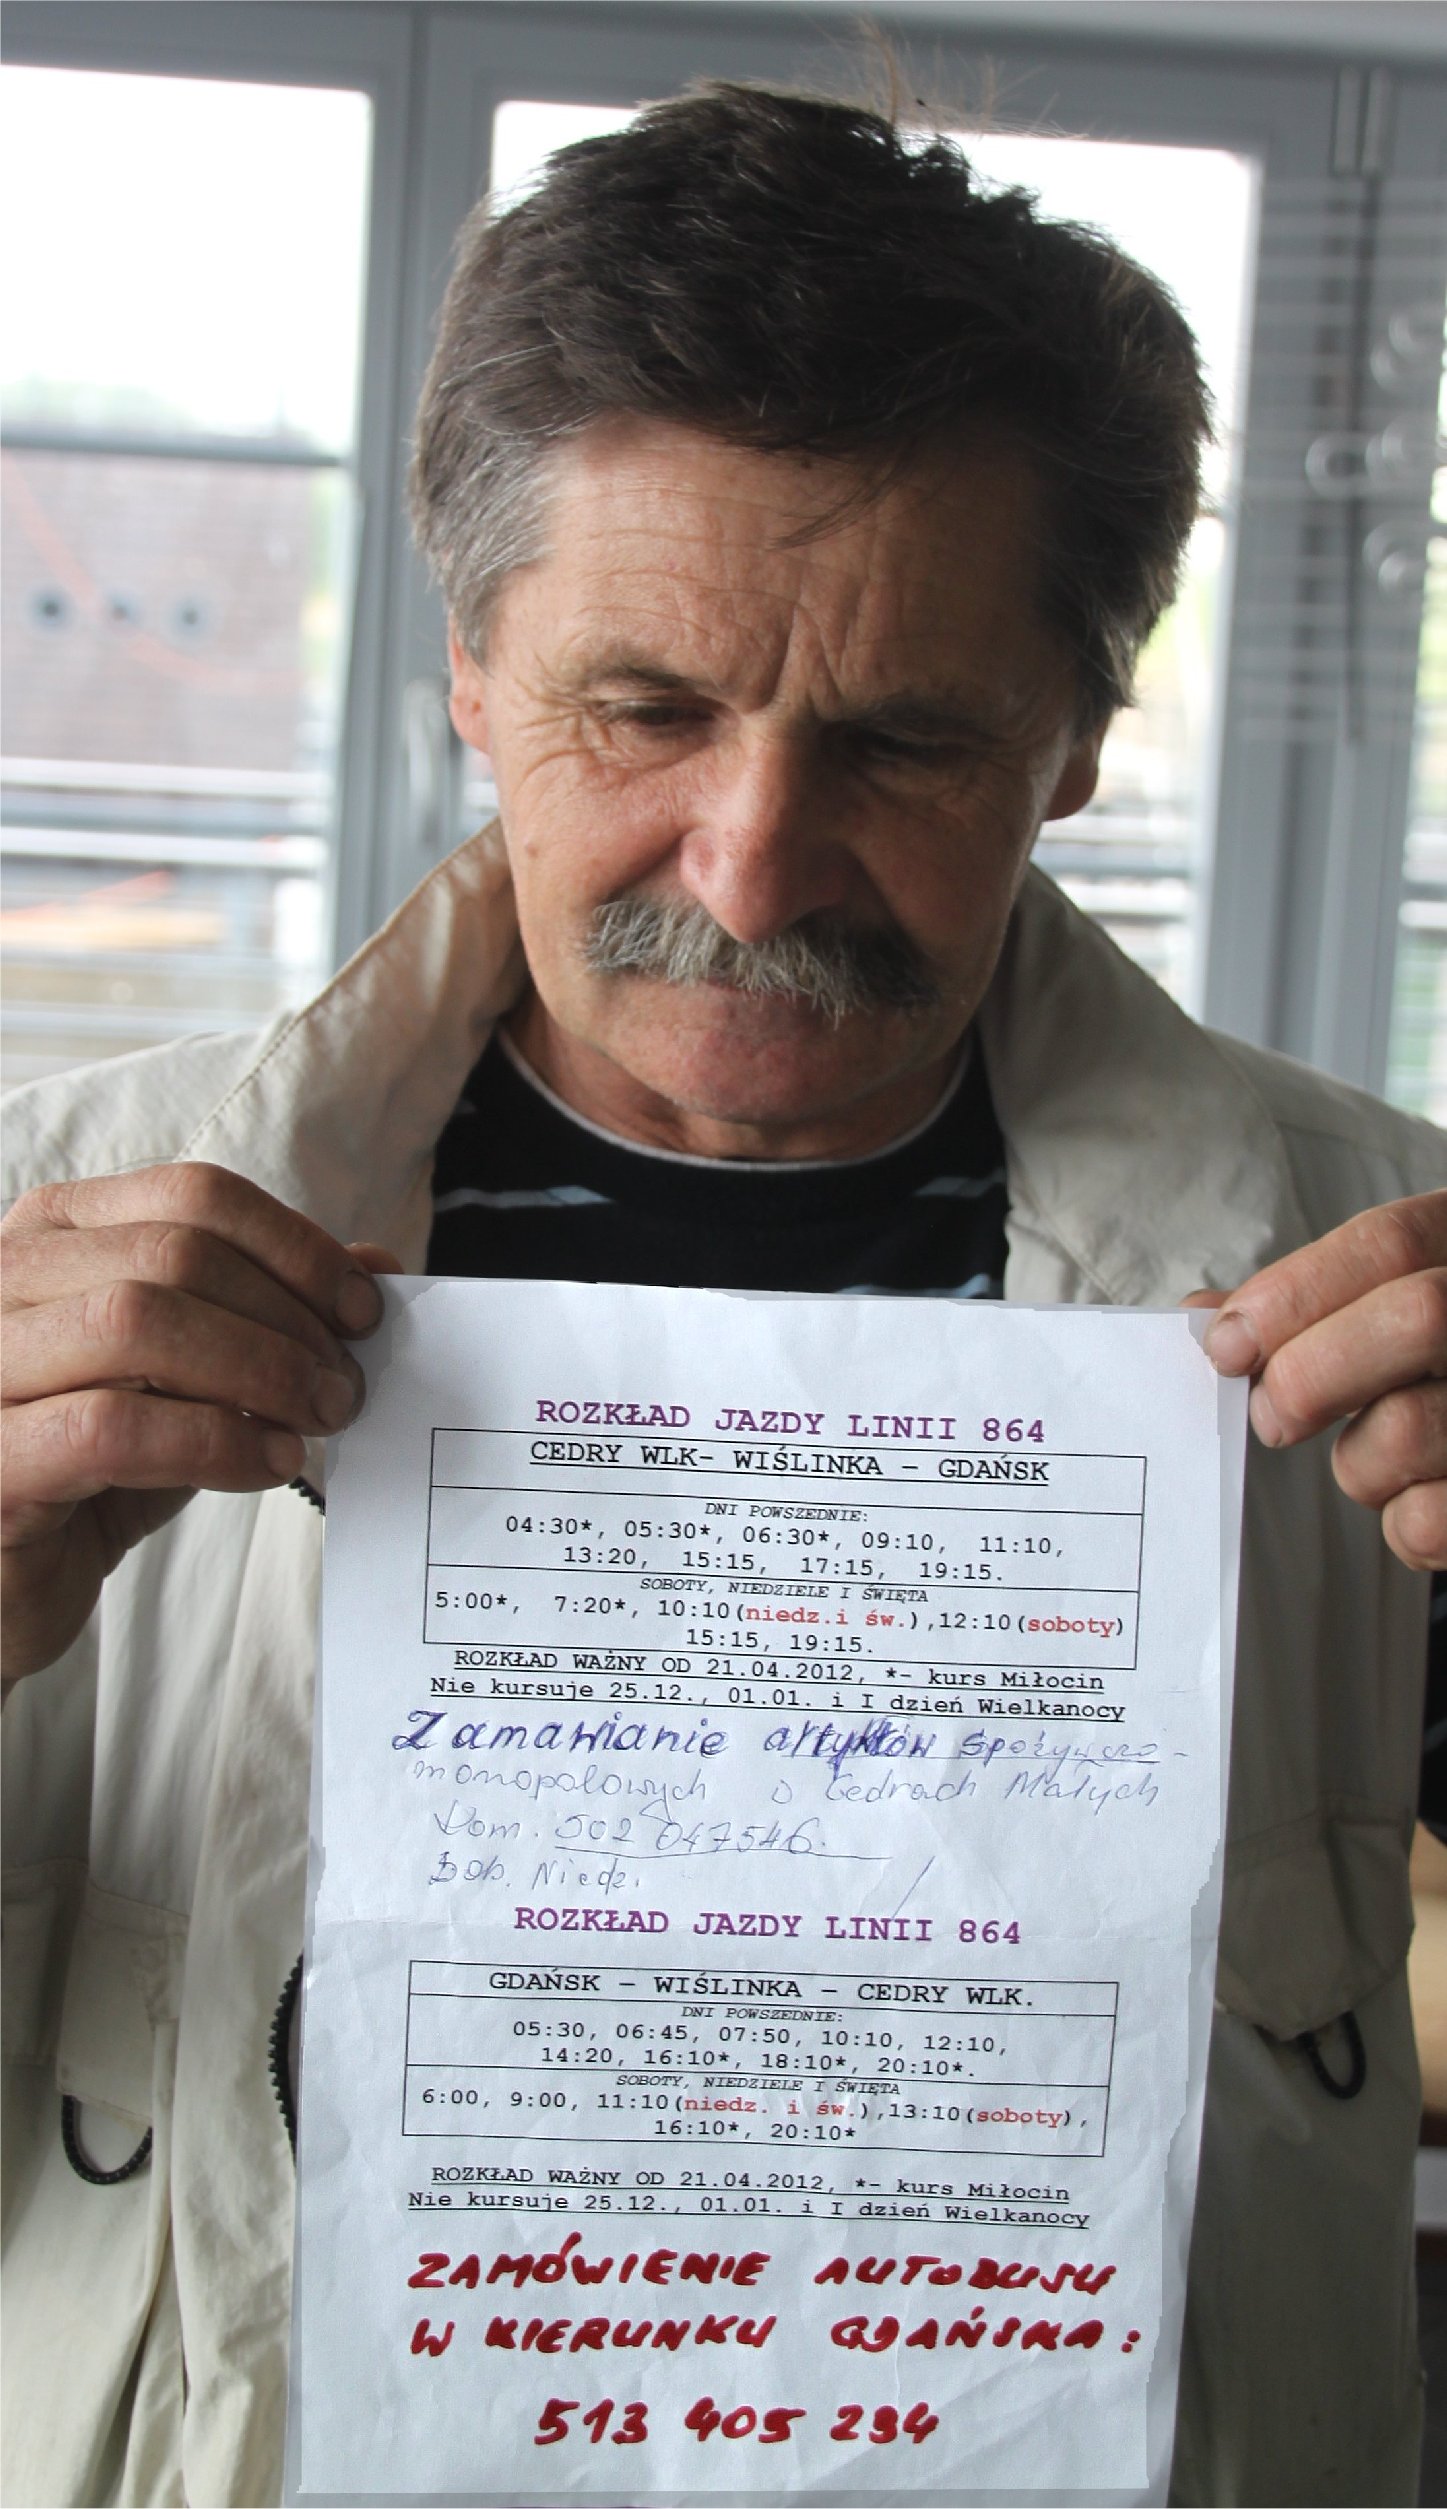 ROZKŁAD JAZDY LINII 864
CEDRY WLK- WIŚLINKA – GDAŃSK
DNI POWSZEDNIE:
04:30*, 05:30*, 06:30*, 09:10, 11:10,
13:20, 15:15, 17:15, 19:15.
SOBOTY, NIEDZIELE I ŚWIĘTA
5:00*, 7:20*, 10:10(niedz.i św.),12:10(soboty)
15:15, 19:15.
ROZKŁAD WAŻNY OD 21.04.2012, *- kurs Miłocin
Nie kursuje 25.12., 01.01. i I dzień Wielkanocy
Zamawianie spożywczo-
monopolowych Cedrach Małych
502 047546.
Sob. Niedz.
ROZKŁAD JAZDY LINII 864
GDAŃSK – WIŚLINKA – CEDRY WLK.
DNI POWSZEDNIE:
05:30, 06:45, 07:50, 10:10, 12:10,
14:20, 16:10*, 18:10*, 20:10*.
SOBOTY, NIEDZIELE I ŚWIĘTA
6:00, 9:00, 11:10(niedz. i św.),13:10(soboty),
16:10*, 20:10*
ROZKŁAD WAŻNY OD 21.04.2012, *- kurs Miłocin
Nie kursuje 25.12., 01.01. i I dzień Wielkanocy
ZAMÓWIENIE AUTOBUSU
W KIERUNKU GDAŃSKA:
513 405 234